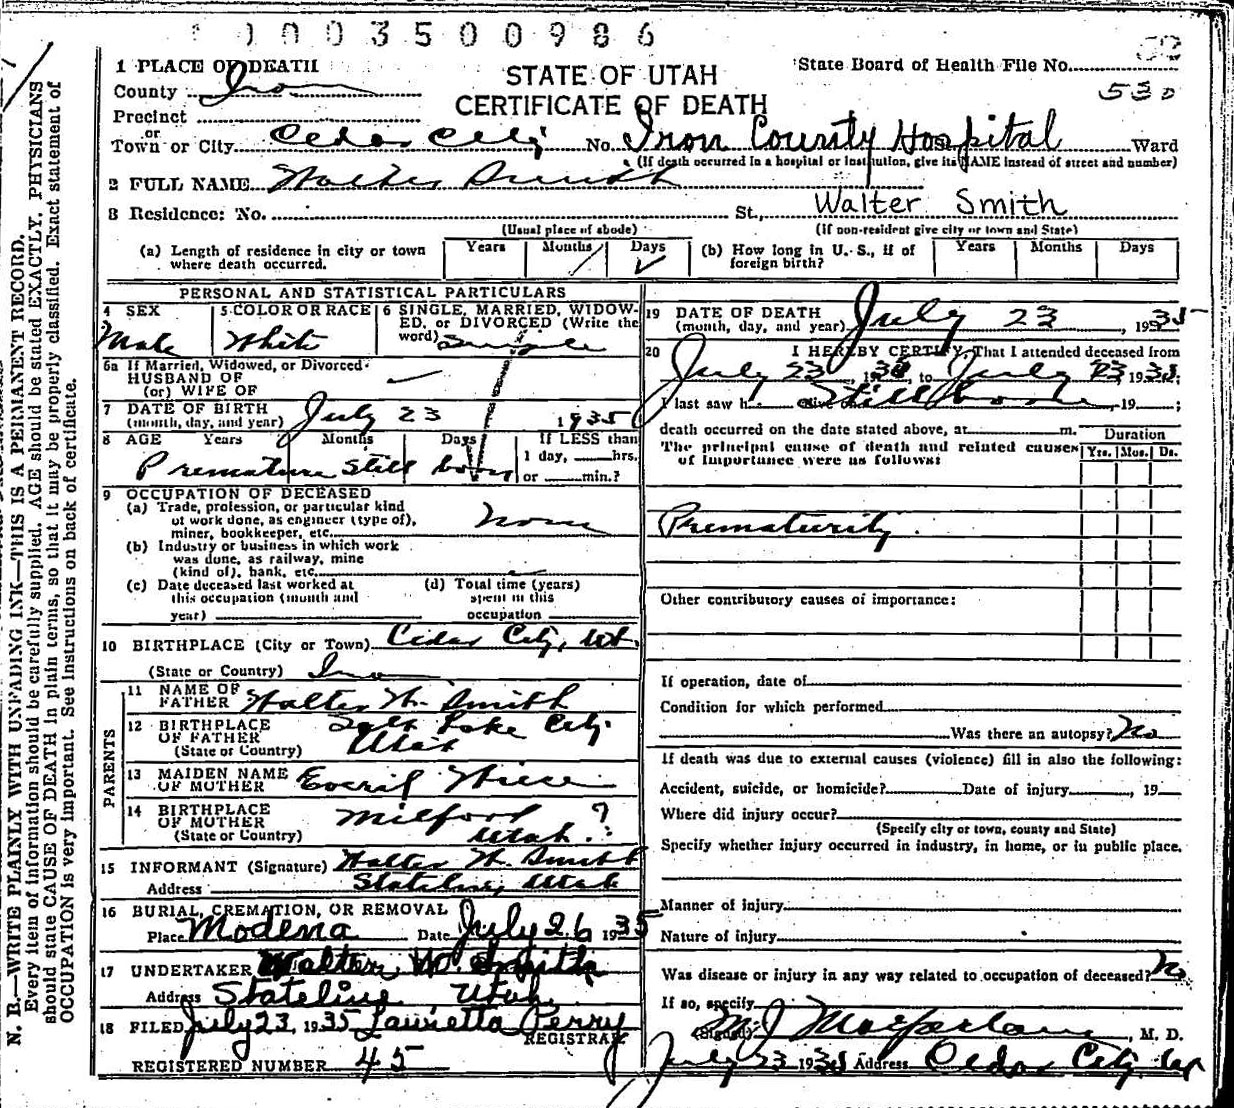 1003500986
1 PLACE OF DEATH
STATE OF UTAH
CERTIFICATE OF DEATH
State Board of Health File No.
530
County Iron
Precinct
or
Town or City Cedar City No. Iron County Hospital Ward
(If death occurred in a hospital or institution, give its NAME instead of street and number)
2 FULL NAME Walter Smith
3 Residence: No. St., Walter Smith
(Usual place of abode) (If non-resident give city or town and State)
(a) Length of residence in city or town where death occurred. Years Months Days (b) How long in U. S., if of foreign birth? Years Months Days
PERSONAL AND STATISTICAL PARTICULARS
4 SEX Male
5 COLOR OR RACE White
6 SINGLE, MARRIED, WIDOWED, or DIVORCED (Write the word) Single
6a If Married, Widowed, or Divorced
HUSBAND OF
(or) WIFE OF
7 DATE OF BIRTH (month, day, and year) July 23 1935
8 AGE Years Months Days If LESS than
1 day, hrs.
or min.?
Premature Still born
9 OCCUPATION OF DECEASED
(a) Trade, profession, or particular kind
of work done, as engineer (type of),
miner, bookkeeper, etc. None
(b) Industry or business in which work
was done, as railway, mine
(kind of), bank, etc.
(c) Date deceased last worked at
this occupation (month and
year)
(d) Total time (years)
spent in this
occupation
10 BIRTHPLACE (City or Town) Cedar City, Ut.
(State or Country) Iron
PARENTS
11 NAME OF FATHER Walter W. Smith
12 BIRTHPLACE OF FATHER Salt Lake City
(State or Country) Utah
13 MAIDEN NAME OF MOTHER
14 BIRTHPLACE OF MOTHER Milford ?
(State or Country) Utah
15 INFORMANT (Signature) Walter W. Smith
Address Stateline, Utah
16 BURIAL, CREMATION, OR REMOVAL
Place Modena Date July 26 1935
17 UNDERTAKER Walter W. Smith
Address Stateline Utah
18 FILED July 23, 1935 Lauretta Perry
REGISTRAR
REGISTERED NUMBER 45
19 DATE OF DEATH
(month, day, and year) July 23, 1935
20 I HEREBY CERTIFY, That I attended deceased from
July 23, 1935, to July 23 1935;
I last saw h alive on Still born, 19 ;
death occurred on the date stated above, at m. Duration
The principal cause of death and related causes Yrs. Mos. Ds.
of importance were as follows:
Prematurity.
Other contributory causes of importance:
If operation, date of
Condition for which performed
Was there an autopsy? No
If death was due to external causes (violence) fill in also the following:
Accident, suicide, or homicide? Date of injury , 19
Where did injury occur?
(Specify city or town, county and State)
Specify whether injury occurred in industry, in home, or in public place.
Manner of injury
Nature of injury
Was disease or injury in any way related to occupation of deceased? No
If so, specify
(Signed) M J Macfarlane, M. D.
July 23 1935 Address Cedar City, Ut
N. B.—WRITE PLAINLY WITH UNFADING INK—THIS IS A PERMANENT RECORD.
Every item of information should be carefully supplied. AGE should be stated EXACTLY. PHYSICIANS
should state CAUSE OF DEATH in plain terms, so that it may be properly classified. Exact statement of
OCCUPATION is very important. See instructions on back of certificate.